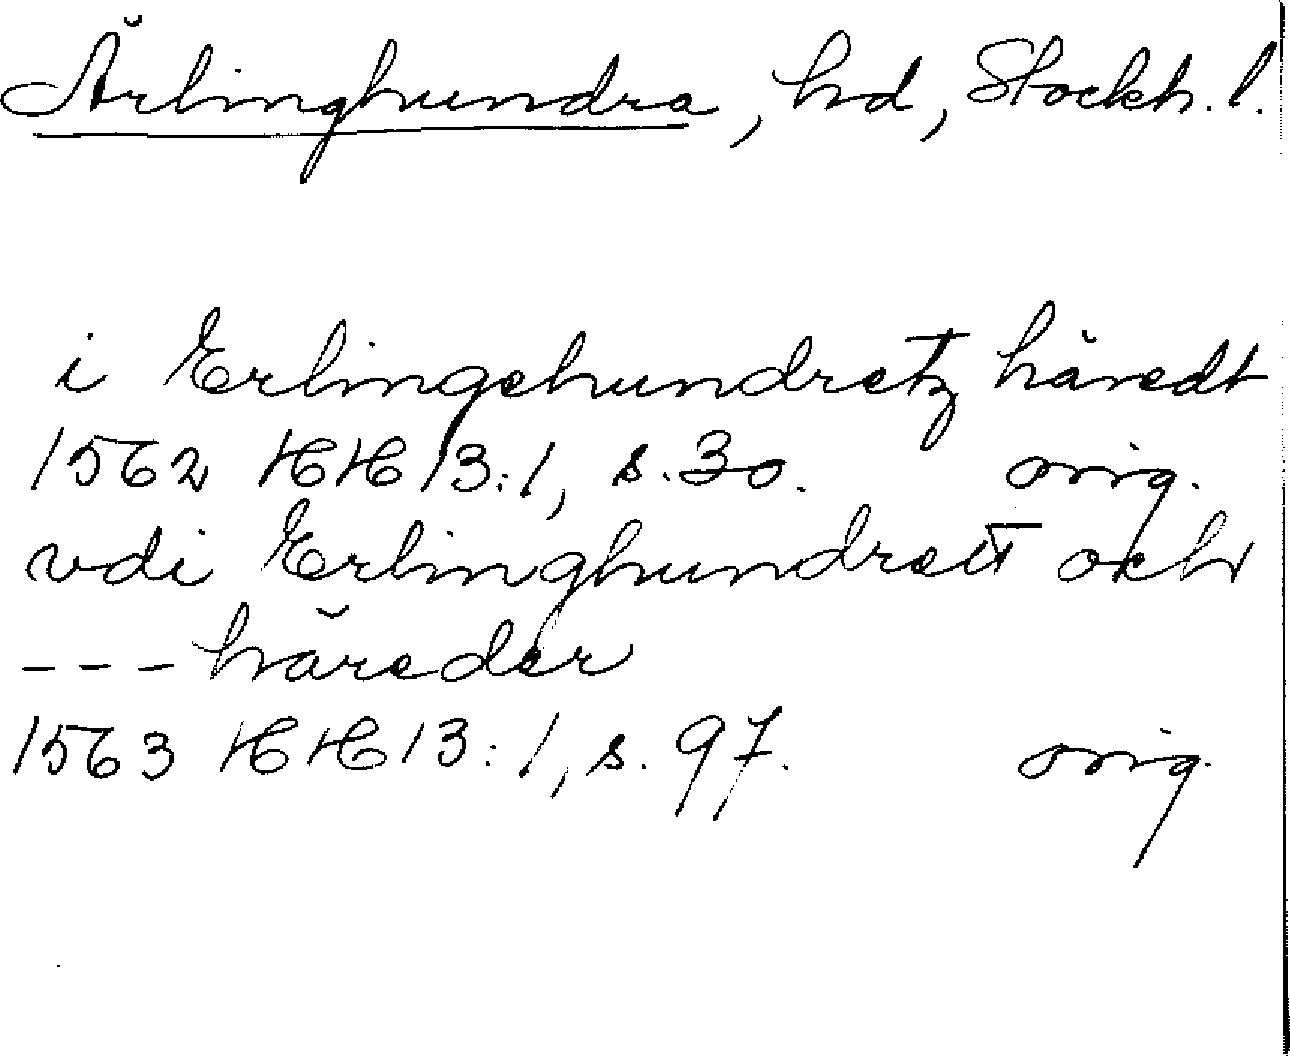 Ärlinghundra, hd, Stockh. l.
i Erlingehundretz häredt
1562 HH 13:1, s. 30. orig.
vdi Erlinghundrett och
--- häreder
1563 HH 13:1, s. 97. orig.